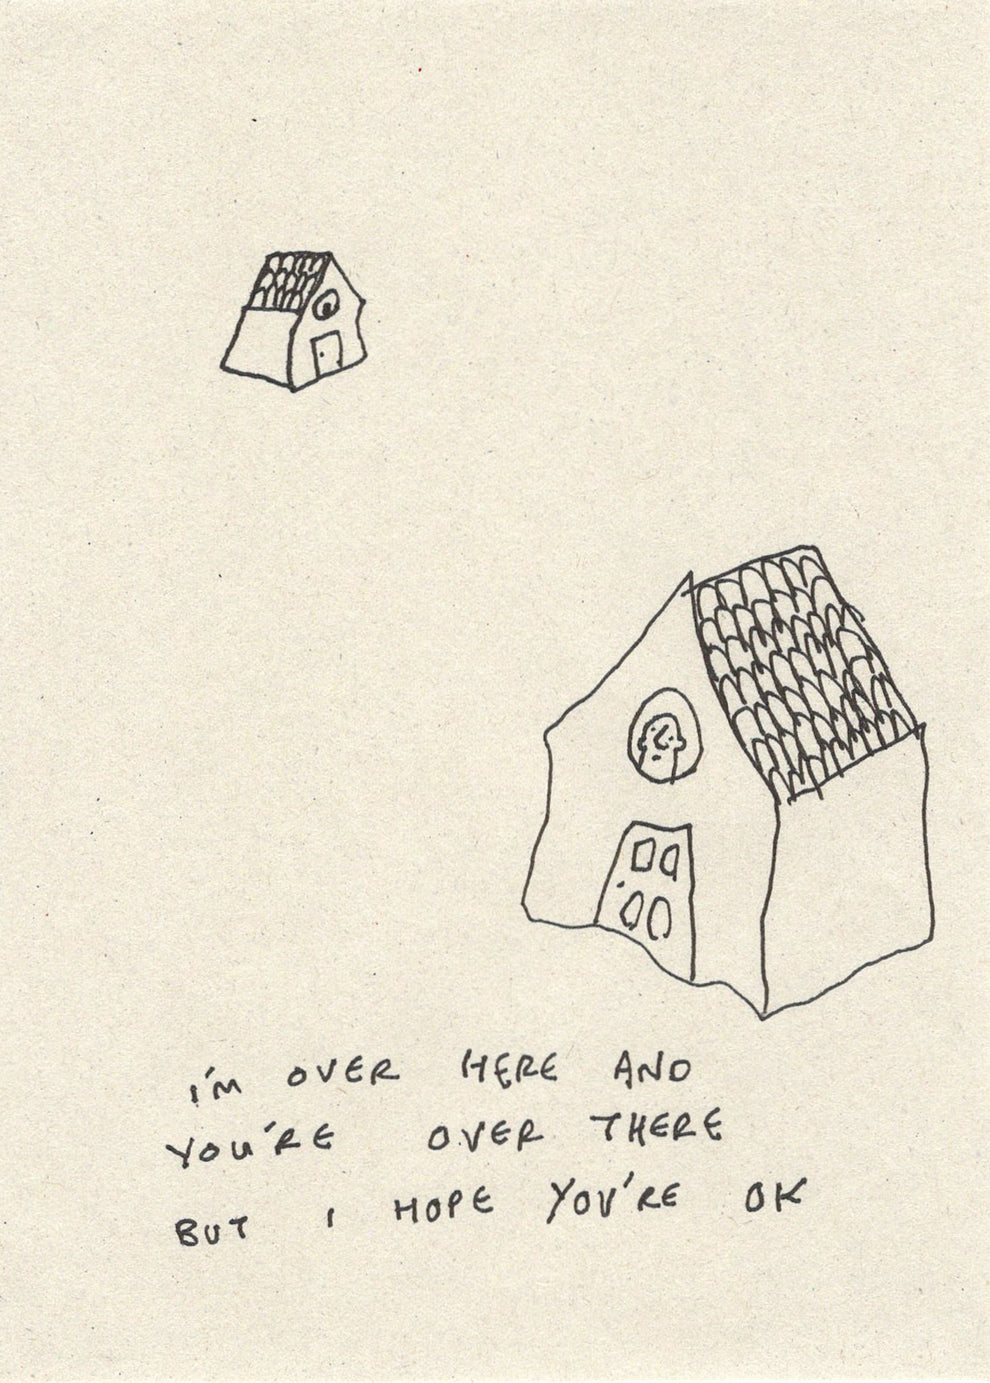 I'M OVER HERE AND
YOU'RE OVER THERE
BUT I HOPE YOU'RE OK